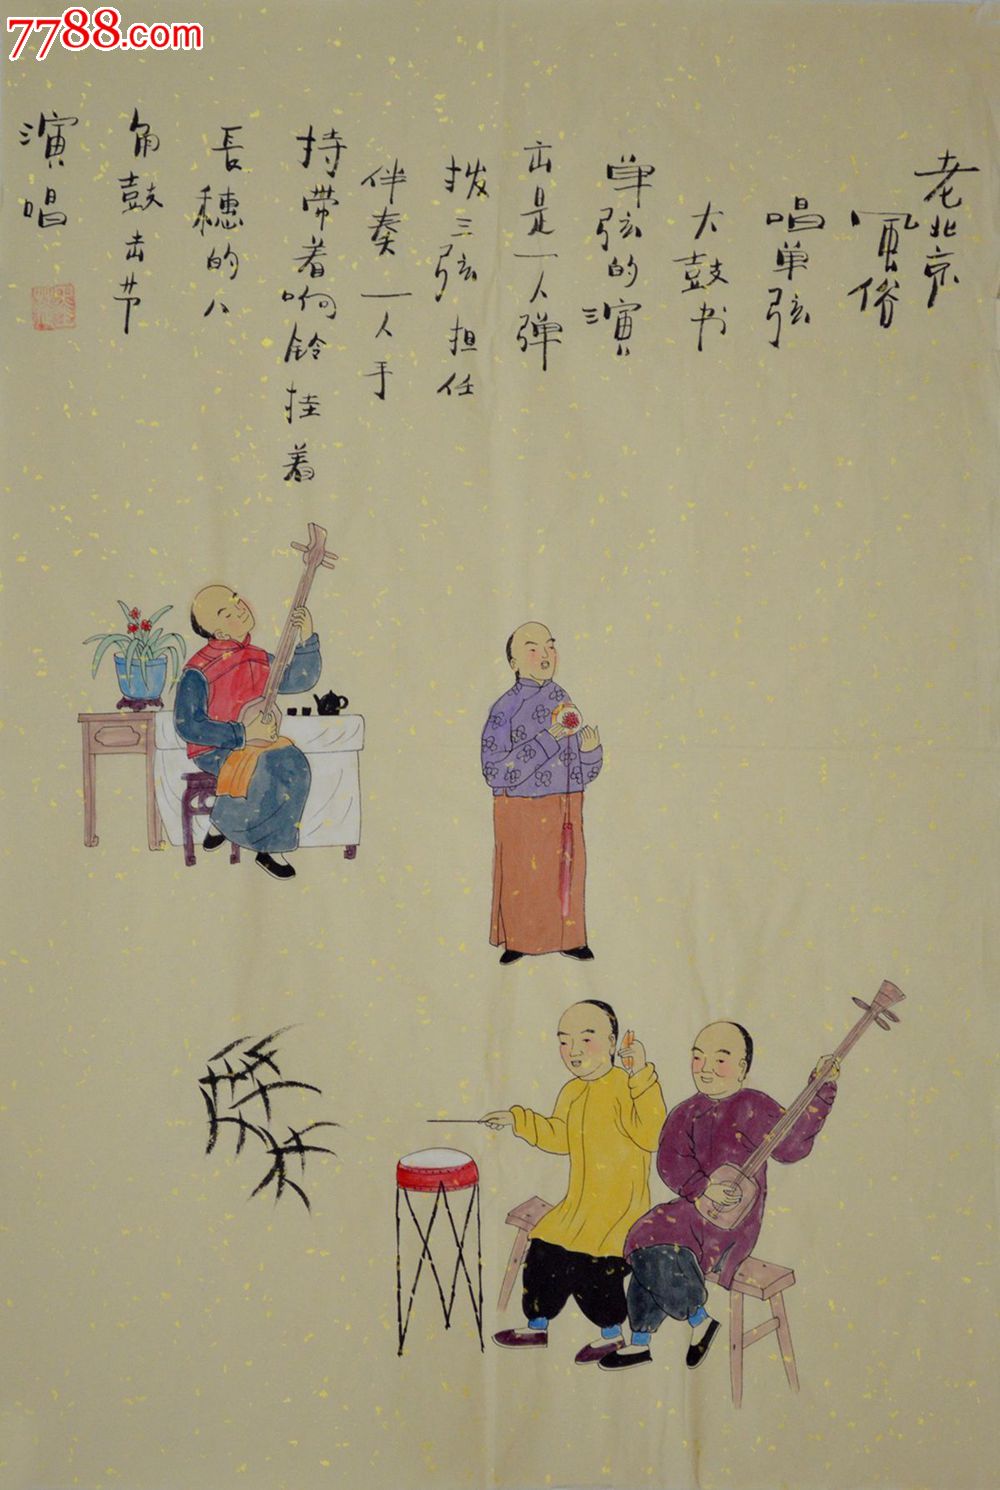 7788.com
老北京
風俗
唱单弦
大鼓书
单弦的演
出是一人弹
拨三弦担任
伴奏一人手
持带着响铃挂着
長穗的八
角鼓击节
演唱